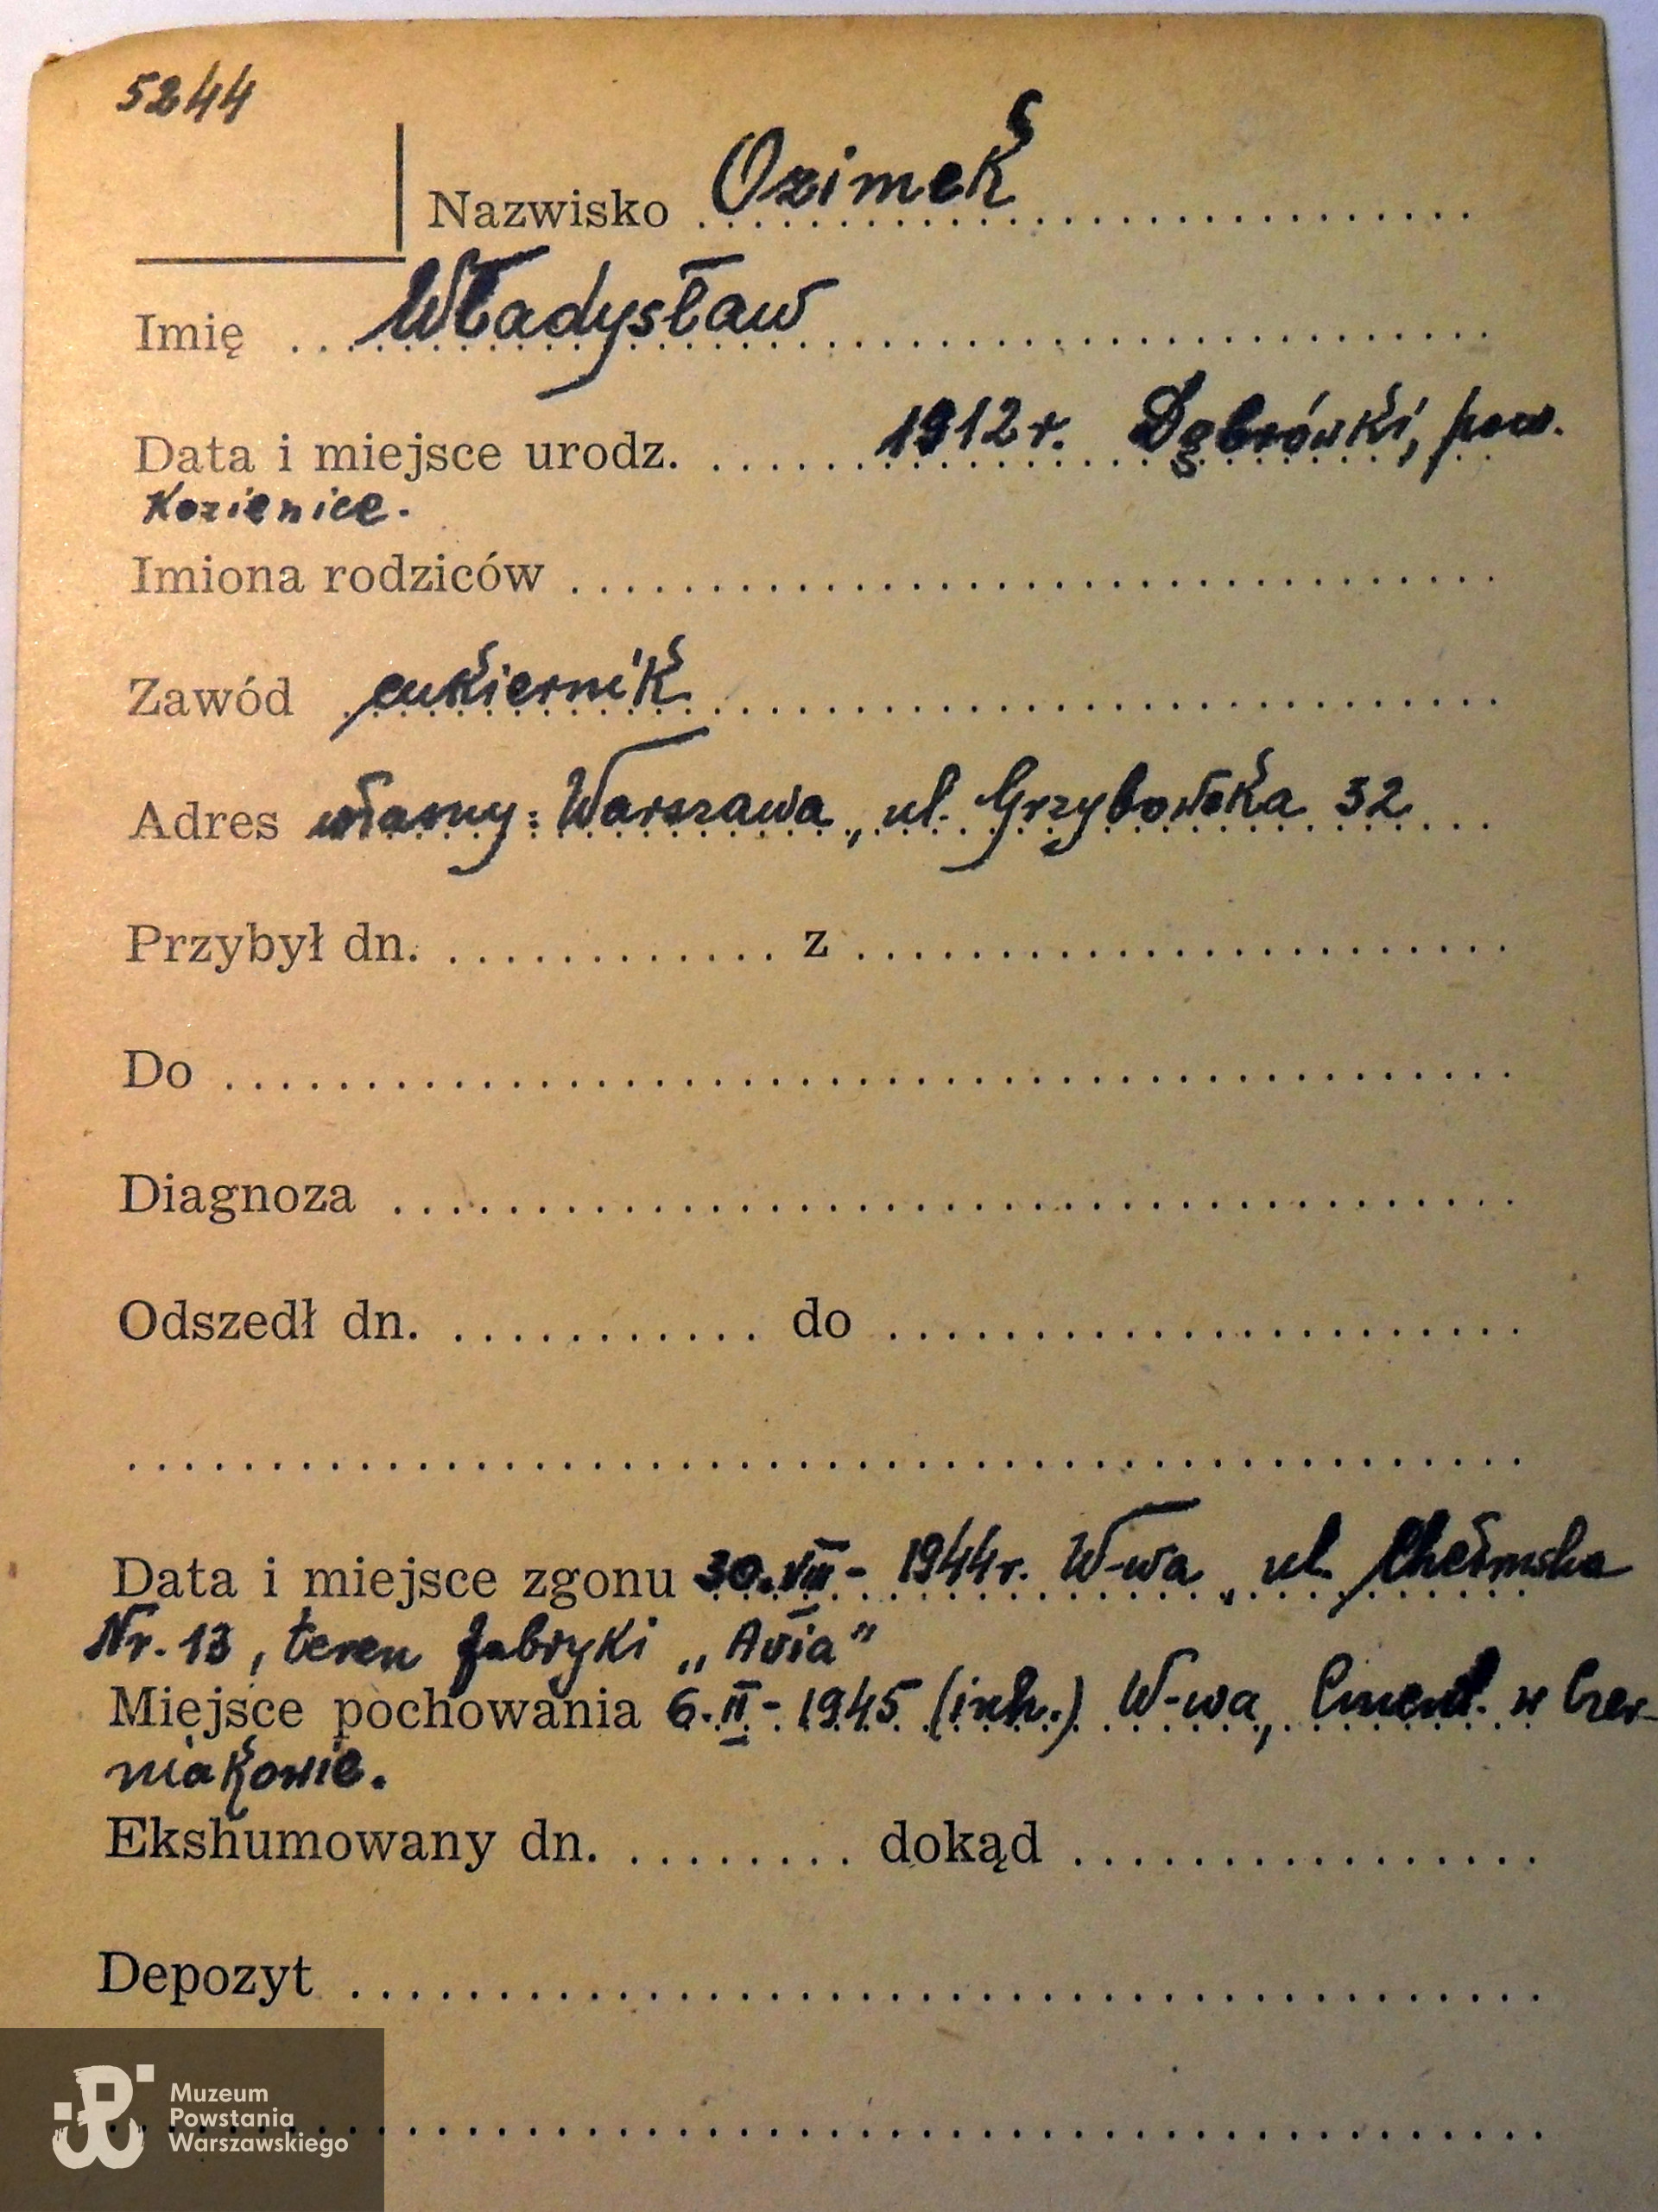 5244
Nazwisko Ozimek
Imię Władysław
Data i miejsce urodz. 1912 r. Dąbrówki, pow.
Kozienice.
Imiona rodziców
Zawód cukiernik
Adres własny: Warszawa, ul. Grzybowska 32
Przybył dn. z
Do
Diagnoza
Odszedł dn. do
Data i miejsce zgonu 30.VIII - 1944 r. W-wa, ul. Chełmska
Nr. 13, teren fabryki „Avia"
Miejsce pochowania 6.II - 1945 (inh.) W-wa, Cment. w Czer-
niakowie.
Ekshumowany dn. dokąd
Depozyt
Muzeum
Powstania
Warszawskiego